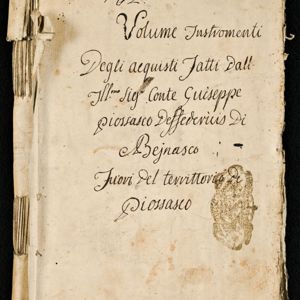 Volume Instromenti
Degli acquisti fatti dall
Ill:mo Sig:r Conte Guiseppe
piossasco Deffedericis Di
Bejnasco
Fuori del territtorio di
piossasco